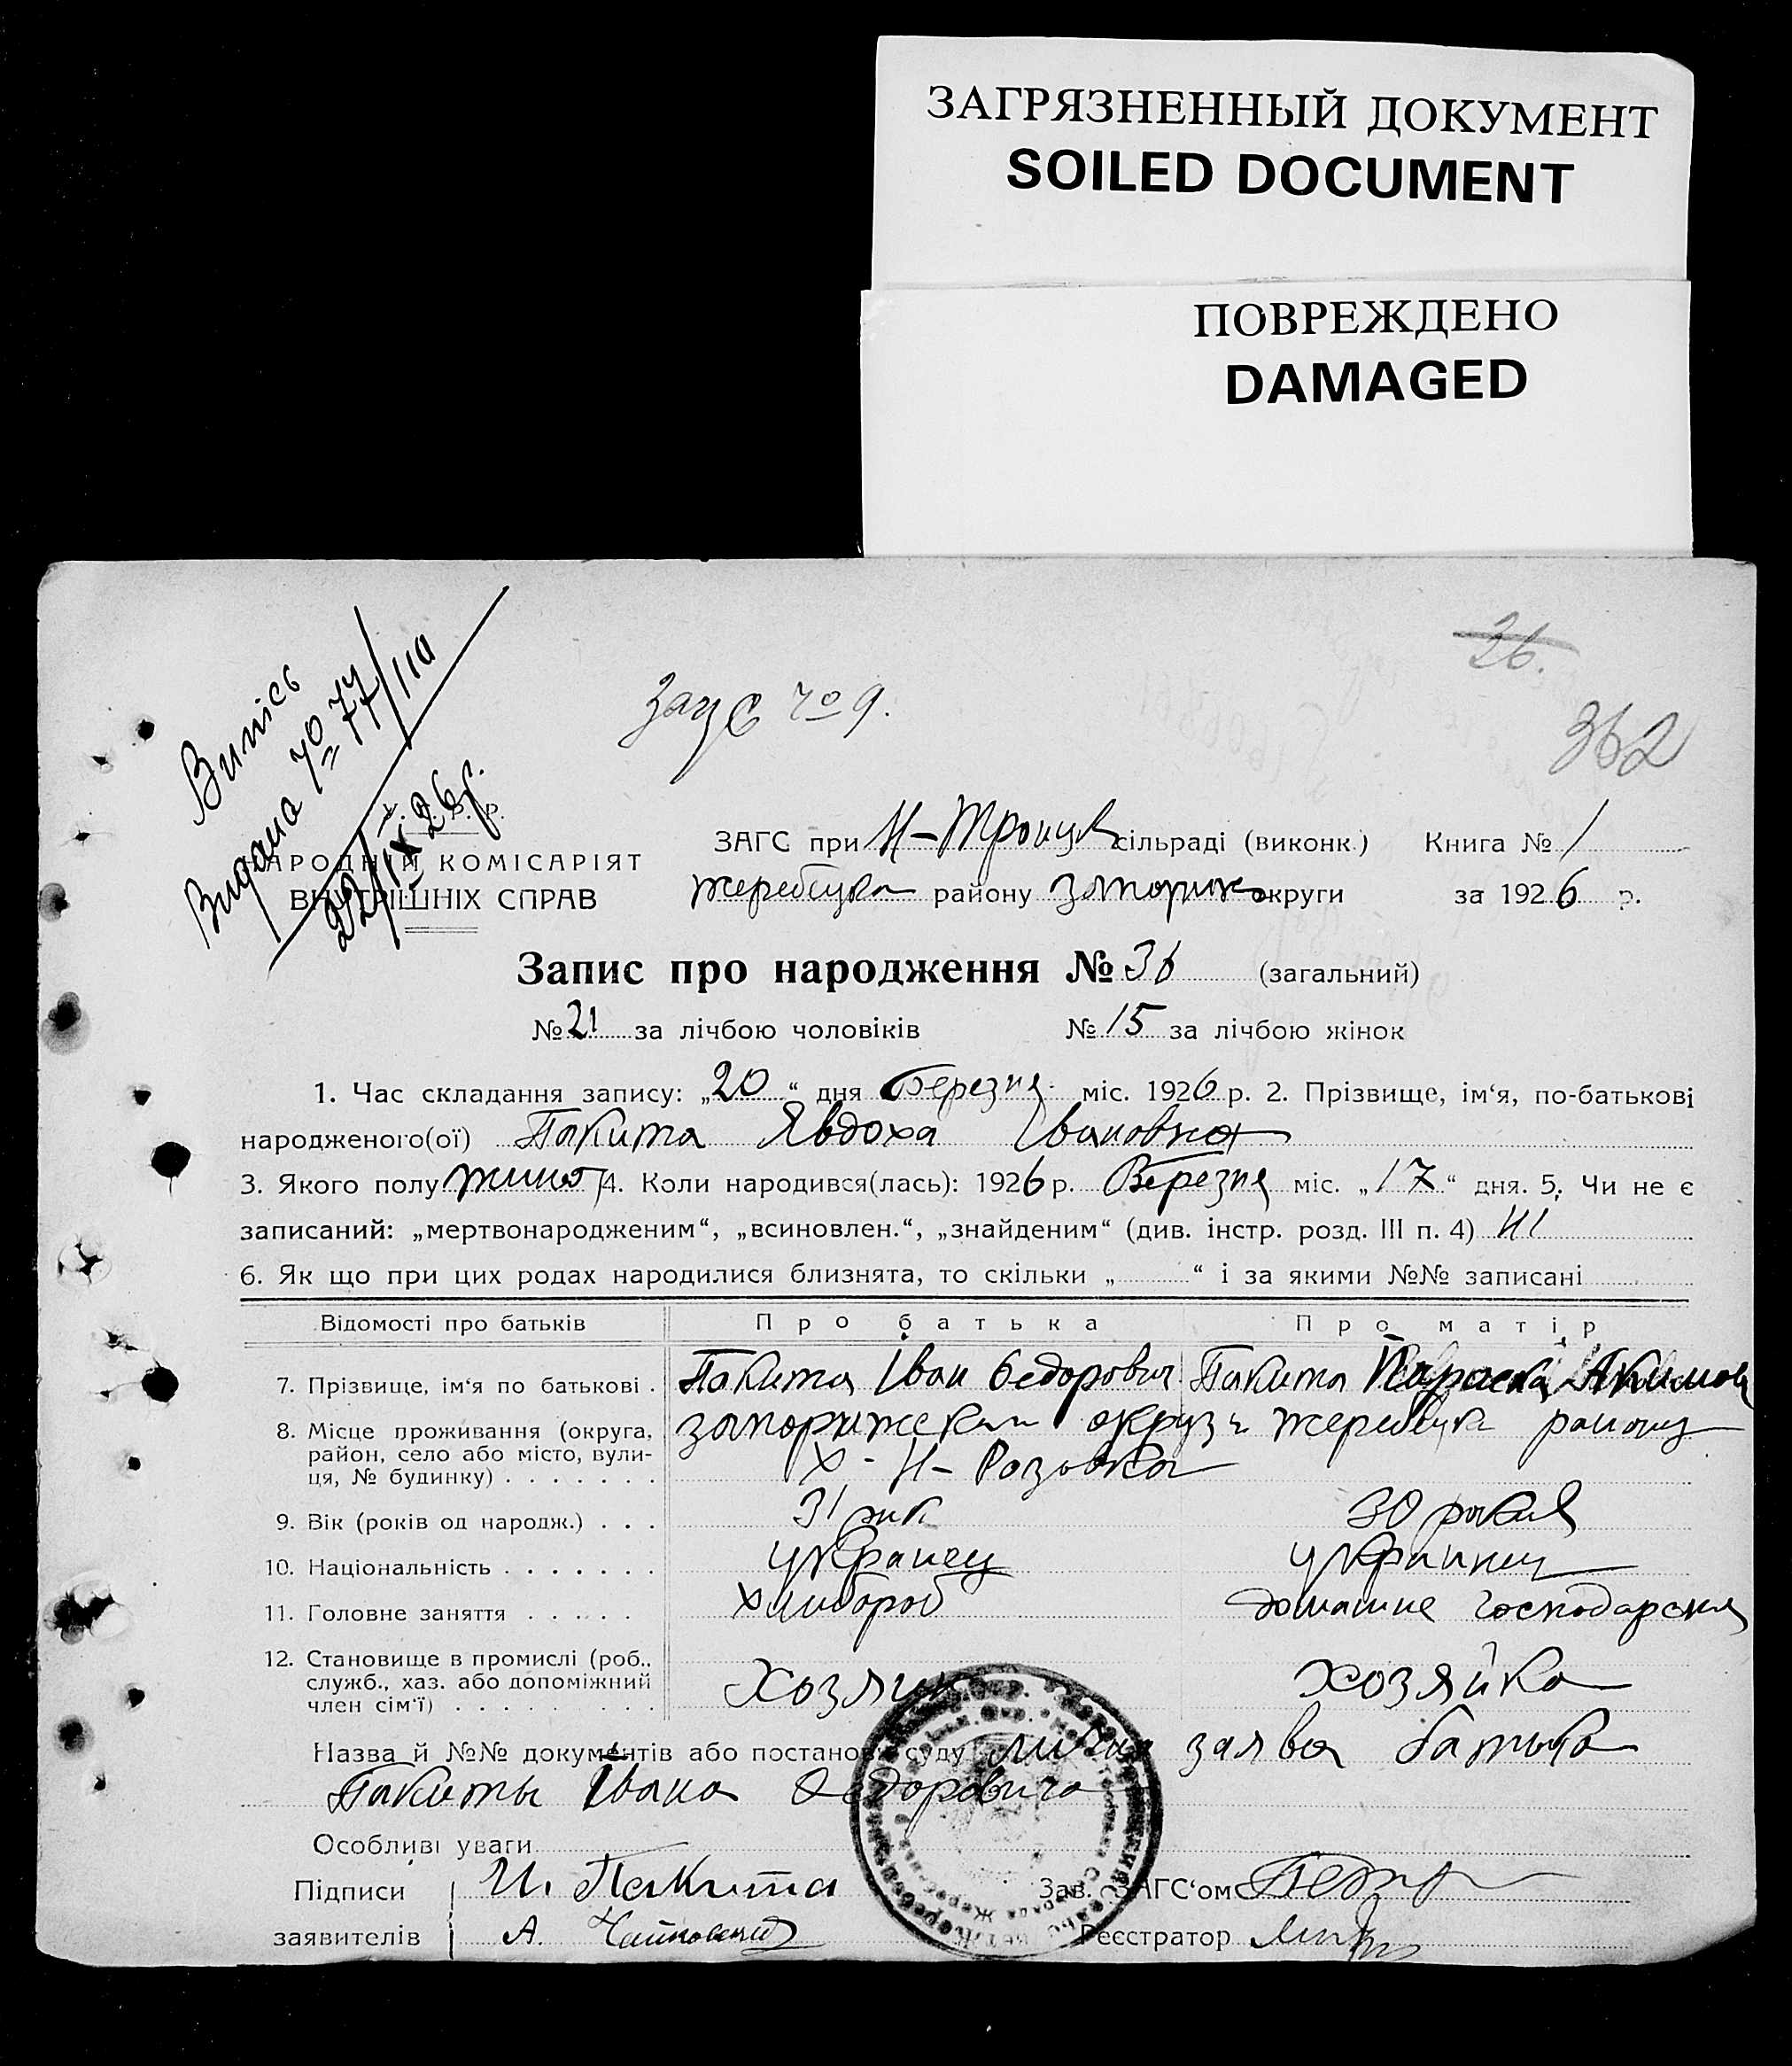 ЗАГРЯЗНЕННЫЙ ДОКУМЕНТ
SOILED DOCUMENT
ПОВРЕЖДЕНО
DAMAGED
26.
362
Загс № 9.
Випись
Видана № 77/110
22/IX 26 р.
НАРОДНІЙ КОМІСАРІЯТ
ВНУТРІШНІХ СПРАВ
ЗАГС при Н-Троицк сільраді (виконк.) Книга № 1
Жеребецьк району Запориж округи за 1926 р.
Запис про народження № 36 (загальний)
№ 21 за лічбою чоловіків № 15 за лічбою жінок
1. Час складання запису: „20“ дня Березня міс. 1926 р. 2. Прізвище, ім‘я, по-батькові
народженого(ої) Пакита Явдоха Івановна
3. Якого полу жиноч 4. Коли народився(лась): 1926 р. Березня міс. „17“ дня. 5. Чи не є
записаний: „мертвонародженим“, „всиновлен.“, „знайденим“ (див. інстр. розд. III п. 4) Ні
6. Як що при цих родах народилися близнята, то скільки „ “ і за якими №№ записані
Відомості про батьків Про батька Про матір
7. Прізвище, ім‘я по батькові . Пакита Іван Федорович Пакита Параска Акимов
8. Місце проживання (округа, район, село або місто, вули-ця, № будинку) . . . . . . . Запорижскои округи Жеребецьк району
Х - Н - Розовка
9. Вік (років од народж.) . . . 31 рик 30 рокив
10. Національність . . . . . . . украинец украинец
11. Головне заняття . . . . . хлибороб домашне господарския
12. Становище в промислі (роб., служб., хаз. або допоміжний член сім‘ї) . . . . . . . . . Хозяин хозяйка
Назва й №№ документів або постанови суду заява батька
Пакиты Івана Федоровича
Особливі уваги
Підписи И. Пакита Зав. ЗАГС‘ом
заявителів А. Реєстратор